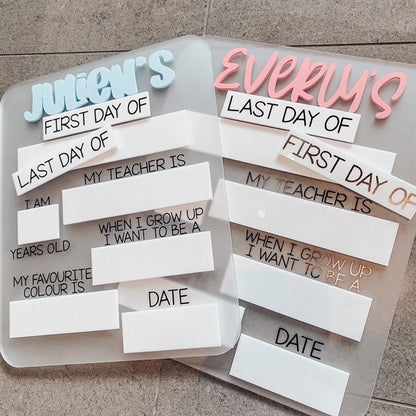 JULIEN'S
FIRST DAY OF
LAST DAY OF
MY TEACHER IS
I AM
YEARS OLD
WHEN I GROW UP
I WANT TO BE A
MY FAVOURITE
COLOUR IS
DATE
EVERLY'S
LAST DAY OF
FIRST DAY OF
MY TEACHER IS
WHEN I GROW UP
I WANT TO BE A
DATE